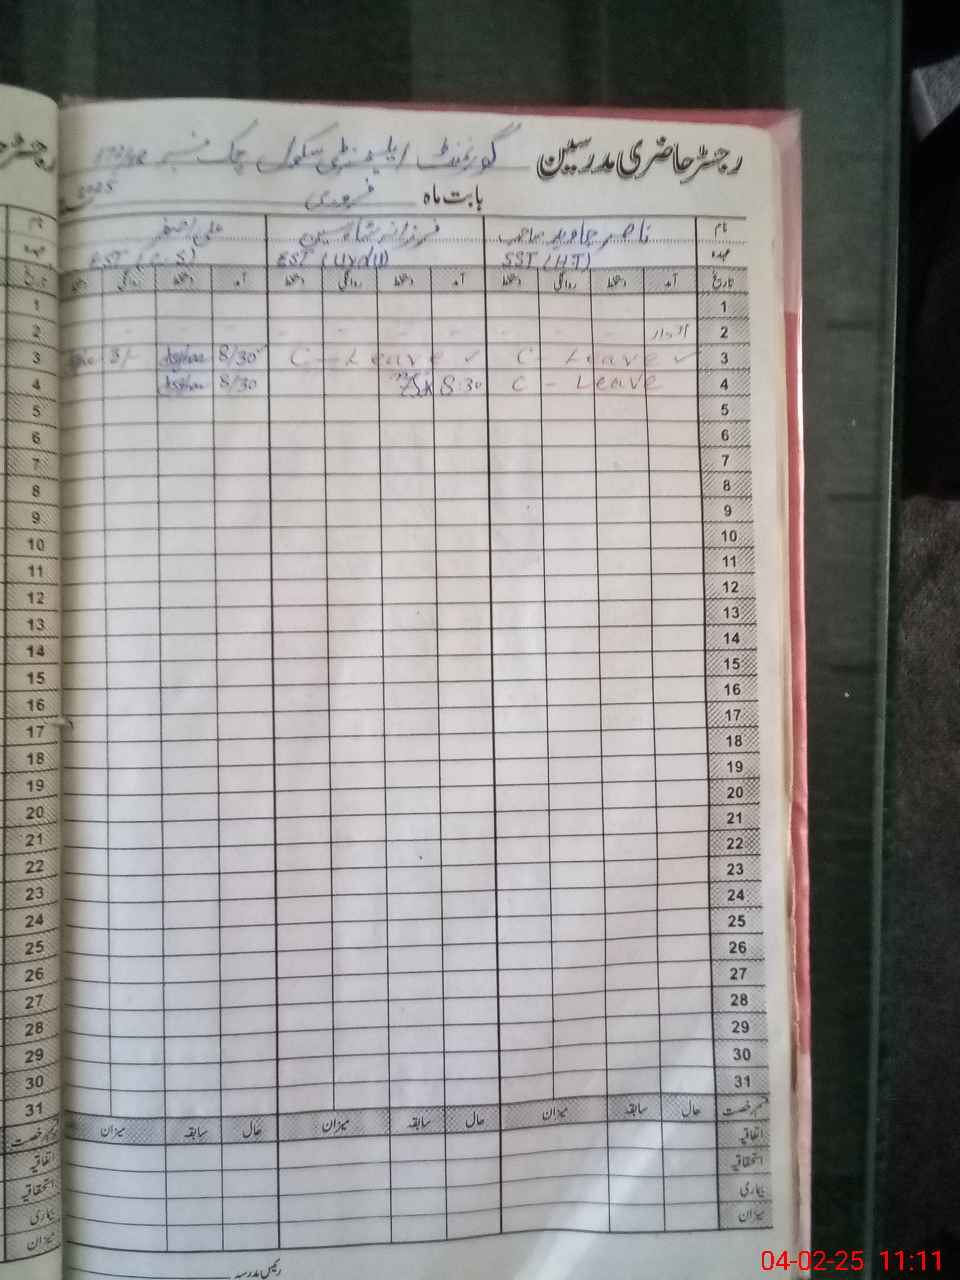 رجسٹر حاضری مدرسین گورنمنٹ ایلیمنٹری سکول چک نمبر
بابت ماہ فروری 2025
نام ناصر جاوید صاحب فرزانہ شاہین علی اصغر
عہدہ SST (HT) EST (Urdu) EST (C.S)
تاریخ آمد دستخط روانگی دستخط آمد دستخط روانگی دستخط آمد دستخط روانگی دستخط
1
2 اتوار
3 C - Leave ✓ C - Leave ✓ 8/30 Asghar
4 C - Leave 8:30 8/30 Asghar
5
6
7
8
9
10
11
12
13
14
15
16
17
18
19
20
21
22
23
24
25
26
27
28
29
30
31
قسم رخصت حال سابقہ میزان حال سابقہ میزان حال سابقہ میزان
اتفاقیہ
استحقاقیہ
بیماری
میزان
رئیس مدرسہ
04-02-25 11:11